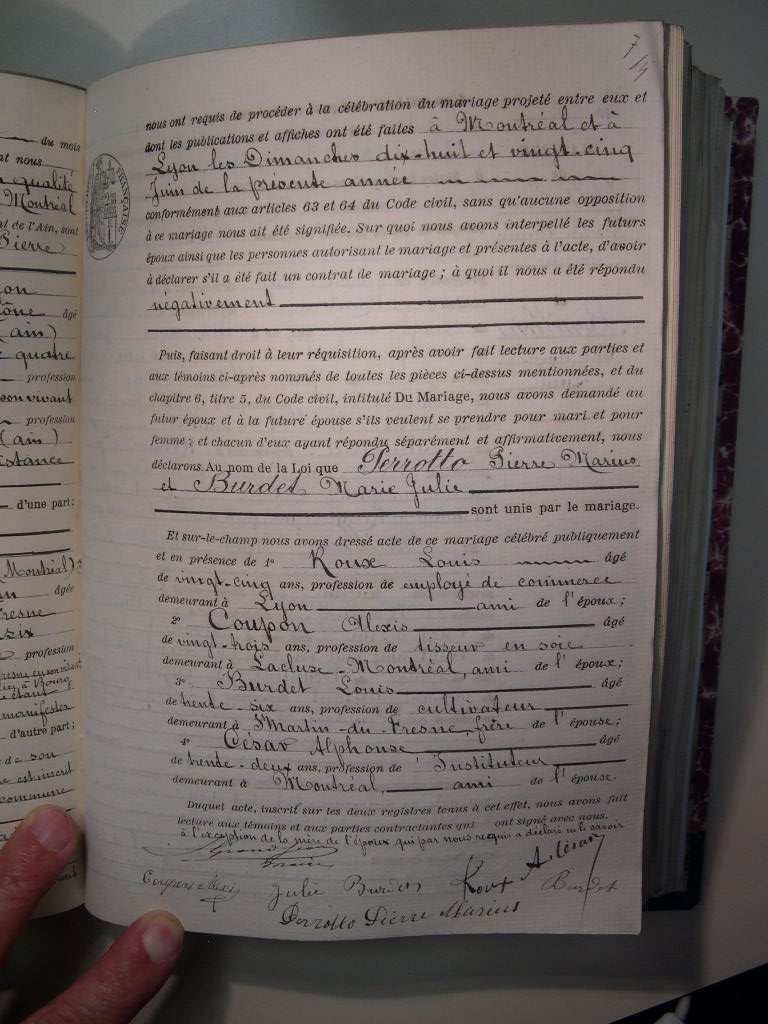 du mois
nt nous
n qualité
Montréal
nt de l'Ain, sont
Pierre
on
ône âgé
(ain)
e quatre
profession
son vivant
profession
(ain)
istance
d'une part;
(Montréal)
âgée
resne
six
profession
manifester
d'autre part;
de son
e est inscrit
commune
7
FRANÇAISE
nous ont requis de procéder à la célébration du mariage projeté entre eux et
dont les publications et affiches ont été faites à Montréal et à
Lyon les Dimanches dix-huit et vingt-cinq
Juin de la présente année
conformément aux articles 63 et 64 du Code civil, sans qu'aucune opposition
à ce mariage nous ait été signifiée. Sur quoi nous avons interpellé les futurs
époux ainsi que les personnes autorisant le mariage et présentes à l'acte, d'avoir
à déclarer s'il a été fait un contrat de mariage; à quoi il nous a été répondu
négativement
Puis, faisant droit à leur réquisition, après avoir fait lecture aux parties et
aux témoins ci-après nommés de toutes les pièces ci-dessus mentionnées, et du
chapitre 6, titre 5, du Code civil, intitulé Du Mariage, nous avons demandé au
futur époux et à la future épouse s'ils veulent se prendre pour mari et pour
femme; et chacun d'eux ayant répondu séparément et affirmativement, nous
déclarons Au nom de la Loi que Perrotto Pierre Marius
et Burdet Marie Julie
sont unis par le mariage.
Et sur-le-champ nous avons dressé acte de ce mariage célébré publiquement
et en présence de 1° Roux Louis âgé
de vingt-cinq ans, profession de employé de commerce
demeurant à Lyon ami de l'époux;
2° Coupon Alexis âgé
de vingt-trois ans, profession de tisseur en soie
demeurant à Lacluse-Montréal, ami de l'époux;
3° Burdet Louis âgé
de trente-six ans, profession de cultivateur
demeurant à St Martin-du Fresne, frère de l'épouse;
4° César Alphonse âgé
de trente-deux ans, profession de Instituteur
demeurant à Montréal, ami de l'épouse.
Duquel acte, inscrit sur les deux registres tenus à cet effet, nous avons fait
lecture aux témoins et aux parties contractantes qui ont signé avec nous.
à l'exception de la mère de l'époux qui par nous requis a déclaré ne le savoir
A. César
Coupon Alexis Julie Burdet Roux Burdet
Perrotto Pierre Marius